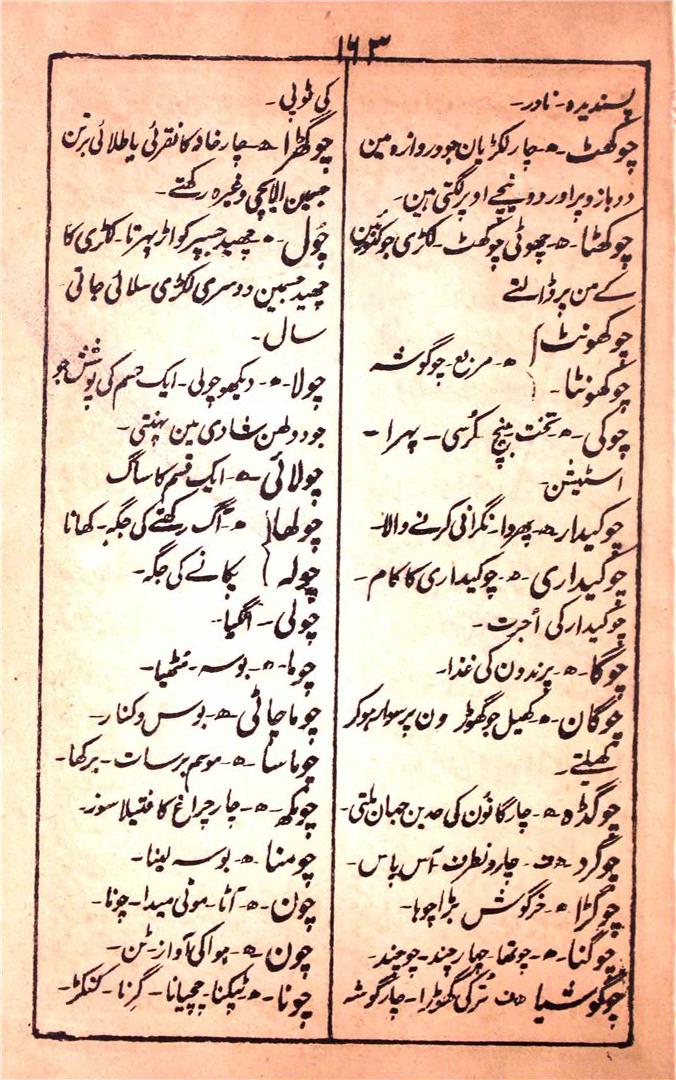 ۱۶۳
پسندیدہ۔ نادر۔
چوکھٹ۔ ھ۔ چار لکڑیان جو دروازہ مین
دو بازو پر اور دو نیچے اوپر لگتی ہین۔
چوکھٹا۔ ھ۔ چھوٹی چوکھٹ۔ لکڑی جو کنوئین
کے من پر ڈالتے
چوکھونٹ
چوکھونٹا۔ ھ۔ مربع۔ چوگوشہ
چوکی۔ ھ۔ تخت بینچ کرسی۔ پہرا۔
اسٹیشن۔
چوکیدار ھ۔ پہروا۔ نگرانی کرنے والا۔
چوکیداری۔ ھ۔ چوکیداری کا کام۔
چوکیدار کی اُجرت۔
چوگا۔ ھ۔ پرندون کی غذا۔
چوگان۔ ھ۔ کھیل جو گھوڑون پر سوار ہوکر
کھیلتے۔
چوگڈہ ھ۔ چار گانوُن کی حدین جہان ملتی۔
چوگرد ھ ف۔ چارونطرف آس پاس۔
چوگڑا ھ۔ خرگوش بڑا چوہا۔
چوگنا۔ ھ۔ چوتھا چہار چند۔ چوچند۔
چوگوشیا ھ ف تُرکی گھوڑا۔ چار گوشہ
کی ٹوپی۔
چوگھڑا ھ۔ چار خانہ کا نقرئی یا طلائی برتن
جسمین الایچی وغیرہ رکھتے۔
چُول۔ ھ۔ چھید جسپر کواڑ پھرتا۔ لکڑی کا
چھید جسمین دوسری لکڑی سلائی جاتی
سال۔
چولا۔ ھ۔ دیکھو چولی۔ ایک قسم کی پوشش جو
جو دولھن شادی مین پہنتی۔
چولائی ھ۔ ایک قسم کا ساگ
چولھا ھ۔ آگ رکھنے کی جگہ۔ کھانا
چولہ پکانے کی جگہ۔
چولی۔ انگیا۔
چوما۔ ھ۔ بوسہ۔ مٹھیا۔
چوما چاٹی ھ۔ بوس و کنار۔
چوماسا۔ ھ۔ موسم برسات۔ برکھا۔
چومکھ۔ ھ۔ چار چراغ کا فتیلا سوز۔
چومنا۔ ھ۔ بوسہ لینا۔
چون۔ ھ۔ آٹا۔ موٹی میدا۔ چونا۔
چون۔ ھ۔ ہوا کی آواز۔ ٹن۔
چونا۔ ھ۔ ٹپکنا۔ چچیانا۔ گرنا۔ کنکڑ۔